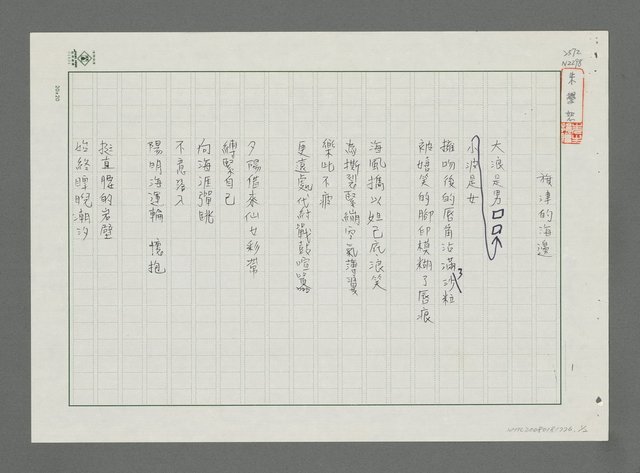 旗津的海邊
大浪是男
小波是女
擁吻後的唇角沾滿沙粒
被嬉笑的腳印模糊了唇痕
海風撟以妲己屁浪笑
為撕裂緊繃空氣薄翼
樂此不疲
更遠處代紂戰鼓喧囂
夕陽借來仙女彩帶
縛緊自己
向海涯彈跳
不意落入
陽明海運輪 懷抱
挺直腰的岩壁
始終睥睨潮汐
1
20×20